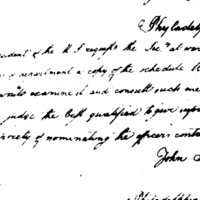 Philadelp
sident of the U S requests the Sec'y at war
s department a copy of the schedule
to examine it and consult such me
judge the best qualified to give infor
priety of nominating the officers conta
John
Philadelphia